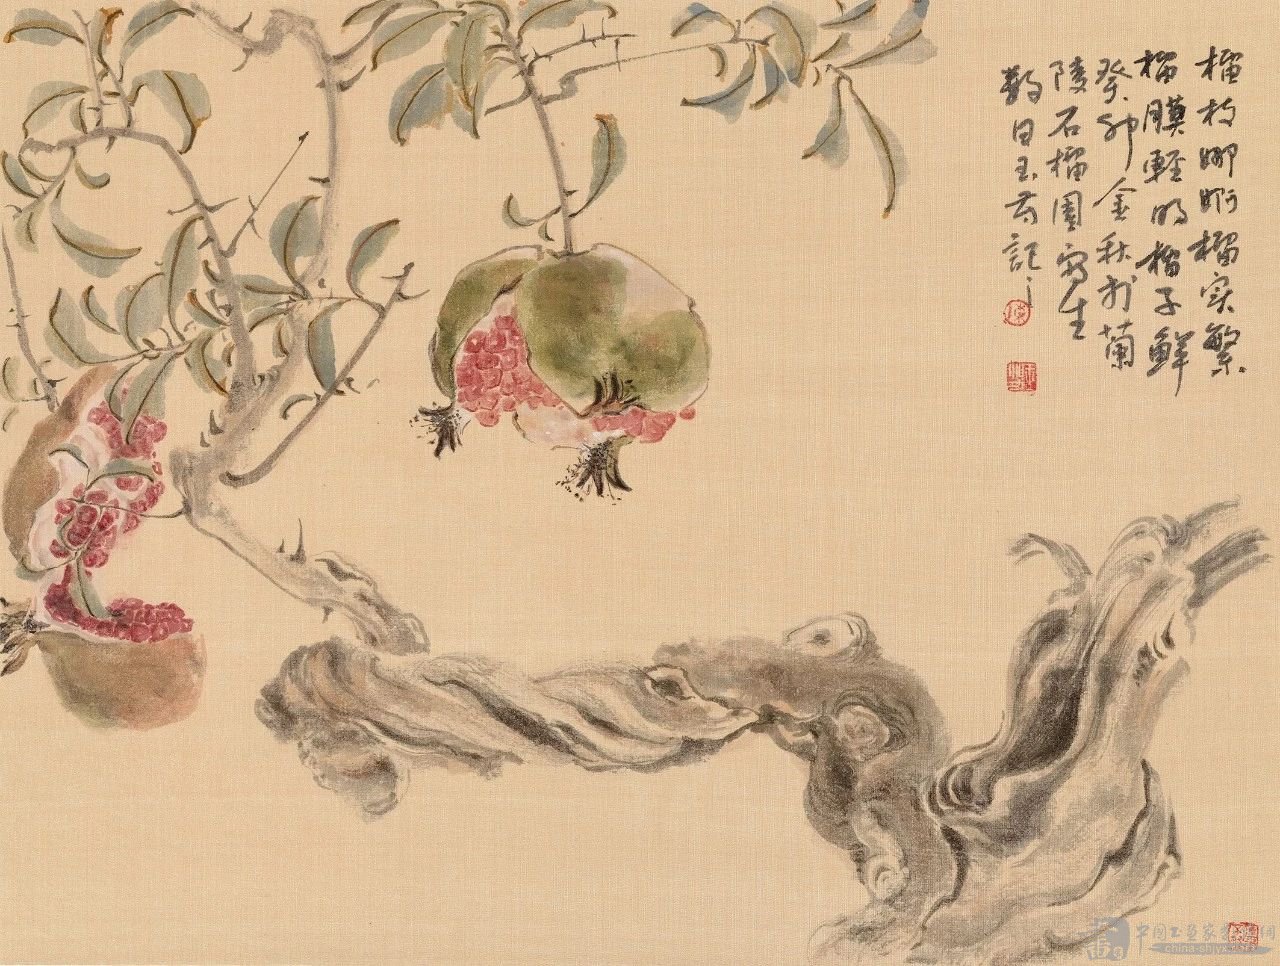 榴枝婀娜榴实繁
榴膜轻明榴子鲜
癸卯金秋于兰
陵石榴园写生
数日玉芬記
中国工笔画家
china-shjyx.com